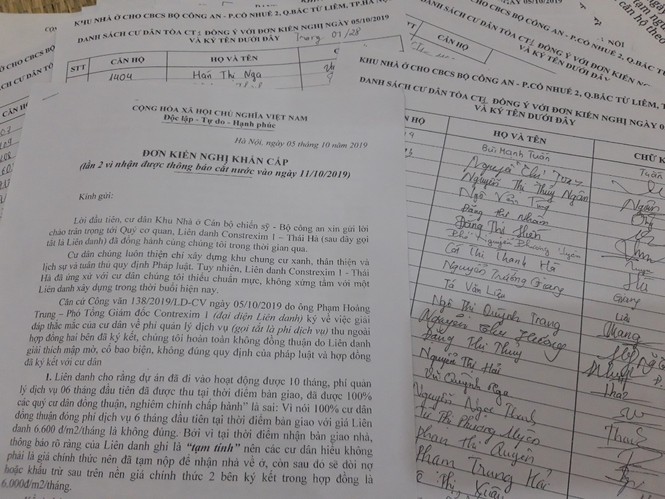 KHU NHÀ Ở CHO CBCS BỘ CÔNG AN - P.CỔ NHUẾ 2, Q.BẮC TỪ LIÊM, TP.HÀ NỘI
DANH SÁCH CƯ DÂN TÒA CT1 ĐỒNG Ý VỚI ĐƠN KIẾN NGHỊ NGÀY 05/10/2019
VÀ KÝ TÊN DƯỚI ĐÂY
Trang 01/28
STT
CĂN HỘ
HỌ VÀ TÊN
1404
Hán Thị Nga
CỘNG HÒA XÃ HỘI CHỦ NGHĨA VIỆT NAM
Độc lập - Tự do - Hạnh phúc
Hà Nội, ngày 05 tháng 10 năm 2019
ĐƠN KIẾN NGHỊ KHẨN CẤP
(lần 2 vì nhận được thông báo cắt nước vào ngày 11/10/2019)
Kính gửi:
Lời đầu tiên, cư dân Khu Nhà ở Cán bộ chiến sỹ - Bộ công an xin gửi lời
chào trân trọng tới Quý cơ quan, Liên danh Constrexim 1 – Thái Hà (sau đây gọi
tắt là Liên danh) đã đồng hành cùng chúng tôi trong thời gian qua.
Cư dân chúng luôn thiện chí xây dựng khu chung cư xanh, thân thiện và
lịch sự và tuân thủ quy định Pháp luật. Tuy nhiên, Liên danh Constrexim 1 - Thái
Hà đã ứng xử với cư dân chúng tôi thiếu chuẩn mực, không xứng tầm với một
Liên danh xây dựng trong thời buổi hiện nay.
Căn cứ Công văn 138/2019/LD-CV ngày 05/10/2019 do ông Phạm Hoàng
Trung – Phó Tổng Giám đốc Contrexim 1 (đại diện Liên danh) ký về việc giải
đáp thắc mắc của cư dân về phí quản lý dịch vụ (gọi tắt là phí dịch vụ) thu ngoài
hợp đồng hai bên đã ký kết, chúng tôi hoàn toàn không đồng thuận do Liên danh
giải thích mập mờ, cố bao biện, không đúng quy định của pháp luật và hợp đồng
đã ký kết với cư dân
1. Liên danh cho rằng dự án đã đi vào hoạt động được 10 tháng, phí quản
lý dịch vụ 06 tháng đầu tiên đã được thu tại thời điểm bàn giao, đã được 100%
các quý cư dân đồng thuận, nghiêm chỉnh chấp hành” là sai: Vì nói 100% cư dân
đồng thuận đóng phí dịch vụ 6 tháng đầu tiên tại thời điểm bàn giao với giá Liên
danh 6.600 đ/m2/tháng là không đúng. Bởi vì tại thời điểm nhận bàn giao nhà,
thông báo rõ ràng của Liên danh ghi là “tạm tính” nên các cư dân hiểu không
phải là giá chính thức nên đã tạm nộp để nhận nhà về ở, còn sau do sẽ đòi nợ
hoặc khấu trừ sau trên nền giá chính thức 2 bên ký kết trong hợp đồng là
6.000đ/m2/tháng.
KHU NHÀ Ở CHO CBCS BỘ CÔNG AN - P.CỔ NHUẾ 2, Q.BẮC TỪ LIÊM
DANH SÁCH CƯ DÂN TÒA CT1 ĐỒNG Ý VỚI ĐƠN KIẾN NGHỊ NGÀY
VÀ KÝ TÊN DƯỚI ĐÂY
CĂN HỘ
HỌ VÀ TÊN
CHỮ K
Bùi Mạnh Tuấn
Tuấn
Nguyễn Thị Thúy Ngân
Ngân
Ngô Văn
Đặng Thị Nhâm
Đặng Thị Hiền
Cát Thị Thanh Hà
Nguyễn Trường Giang
Giang
Tô Văn Liệu
Ngô Thị Quỳnh Trang
Nguyễn Thu Hường
Đặng Thị Thúy
Nguyễn Thị Hải
Vũ Quỳnh Nga
Nguyễn Ngọc
Phan Thị Quyên
Phạm Trung Hải